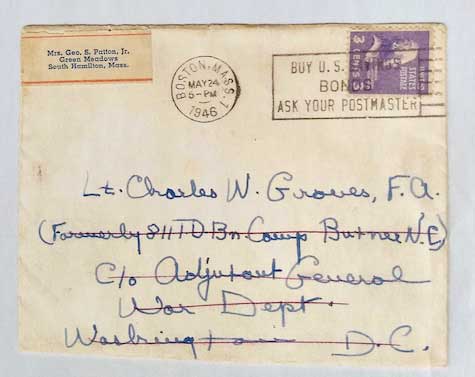 Mrs. Geo. S. Patton, Jr.
Green Meadows
South Hamilton, Mass.
BOSTON, MASS. 1
MAY 24
5-PM
1946
BUY U.S.
BONDS
ASK YOUR POSTMASTER
STATES
POSTAGE
3 CENTS 3
Lt. Charles W. Groves, F.A.
(Formerly 811 TD Bn Camp Butner N.C)
c/o Adjutant General
War Dept.
Washington D.C.